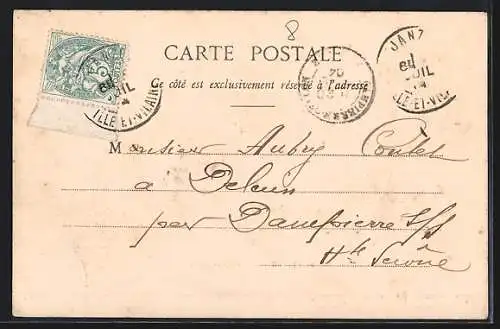 8
CARTE POSTALE
Ce côté est exclusivement réservé à l'adresse
JANZ
JUIL
ILLE-ET-VILAINE
04
JUIL
ILLE-ET-VIL
Monsieur Aubry
à Delain
par Dampierre s/s
Hte Saône